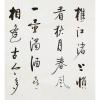 樵江渚上慣
看秋月春風
一壺濁酒喜
相逢古今多